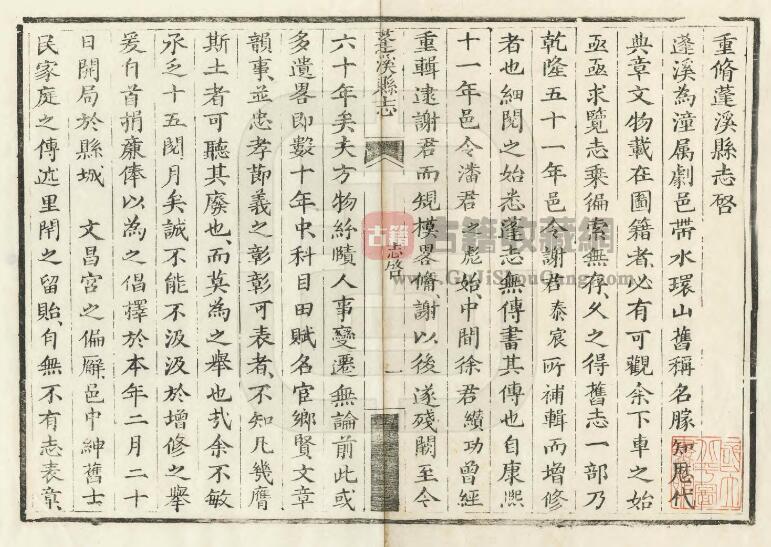 重脩蓬溪縣志啓
蓬溪為潼属劇邑帶水環山舊稱名勝知歴代
典章文物載在圖籍者必有可觀余下車之始
亟亟求覽志乘徧索無存久之得舊志一部乃
乾隆五十一年邑令謝君泰宸所補輯而增修
者也細閱之始悉蓬志無傳書其傳也自康熙
十一年邑令潘君之彪始中間徐君纘功曾經
重輯逮謝君而規模畧脩謝以後遂殘闕至今
蓬溪縣志
志啓
一
六十年矣夫方物紛賾人事變遷無論前此或
多遺畧即數十年中科目田賦名宦鄉賢文章
韻事並忠孝節義之彰彰可表者不知凡幾膺
斯土者可聽其廢也而莫為之舉也哉余不敏
承乏十五閱月矣誠不能不汲汲於增修之舉
爰自首捐亷俸以為之倡擇於本年二月二十
日開局於縣城 文昌宮之偏廨邑中紳舊士
民家庭之傳述里閈之留貽自無不有志表章
古籍
古籍收藏網
www.GuJiShouCang.com